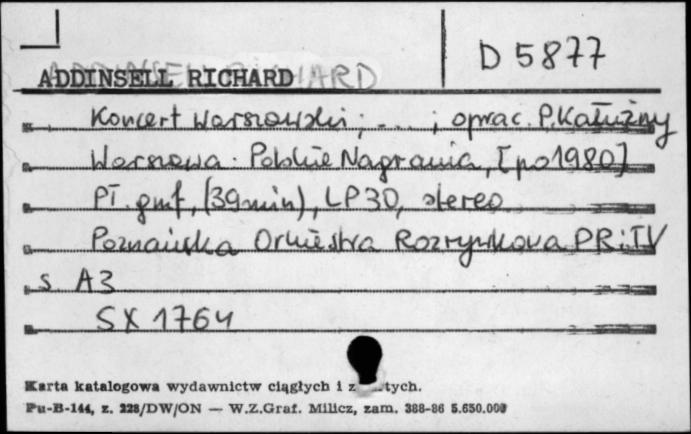 D 5877
ADDINSELL RICHARD
Koncert Warszawski; ... ; oprac. P. Kałużny
Warszawa : Polskie Nagrania, [po 1980]
Pł. gmf, (39 min), LP 30, stereo
Poznańska Orkiestra Rozrywkowa PR i TV
s. A3
SX 1764
Karta katalogowa wydawnictw ciągłych i z tych.
Pu-B-144, z. 228/DW/ON — W.Z.Graf. Milicz, zam. 388-86 5.650.000